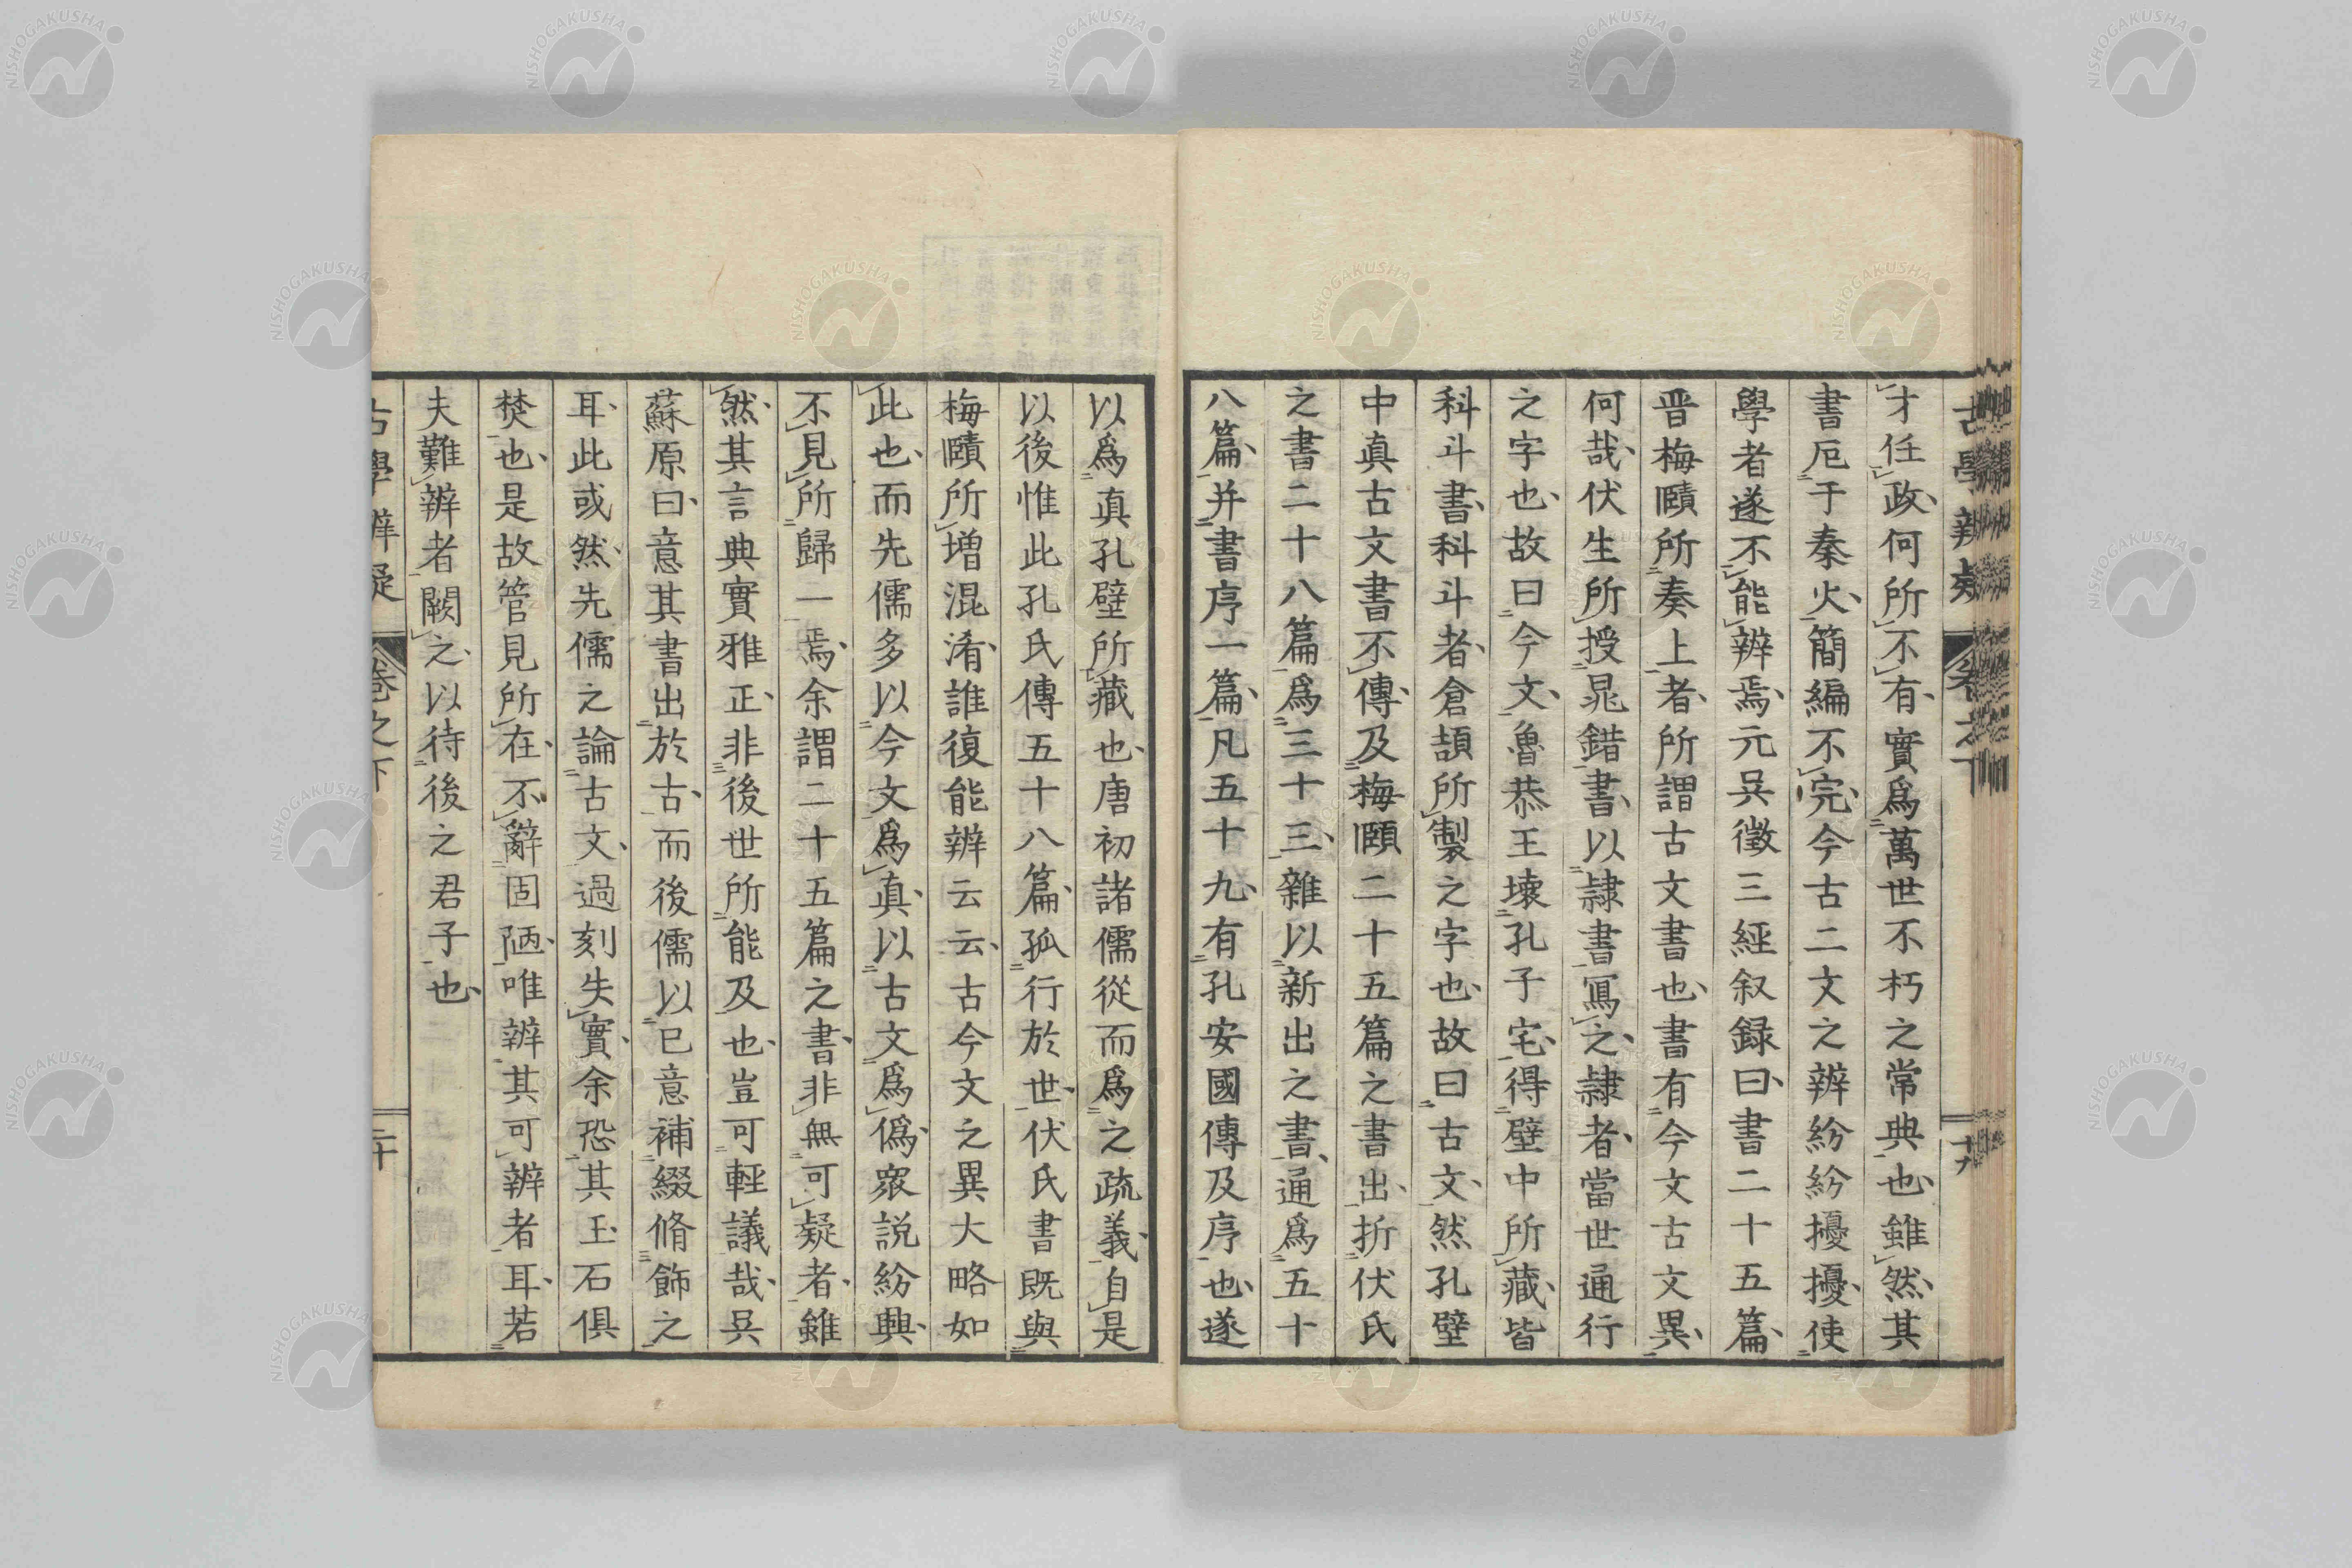 才任政何所不有實爲萬世不朽之常典也雖然其
書厄于秦火簡編不完今古二文之辨紛紛擾擾使
學者遂不能辨焉元吳徵三經叙録曰書二十五篇
晋梅賾所奏上者所謂古文書也書有今文古文異
何哉伏生所授晁錯書以隷書寫之隷者當世通行
之字也故曰今文魯恭王壞孔子宅得壁中所藏皆
科斗書科斗者倉頡所製之字也故曰古文然孔壁
中真古文書不傳及梅賾二十五篇之書出折伏氏
之書二十八篇爲三十三雜以新出之書通爲五十
八篇并書序一篇凡五十九有孔安國傳及序也遂
以爲真孔壁所藏也唐初諸儒從而爲之疏義自是
以後惟此孔氏傳五十八篇孤行於世伏氏書既與
梅賾所增混淆誰復能辨云云古今文之異大略如
此也而先儒多以今文爲真以古文爲僞衆説紛興
不見所歸一焉余謂二十五篇之書非無可疑者雖
然其言典實雅正非後世所能及也豈可輕議哉吳
蘇原曰意其書出於古而後儒以已意補綴脩飾之
耳此或然先儒之論古文過刻失實余恐其玉石俱
焚也是故管見所在不辭固陋唯辨其可辨者耳若
夫難辨者闕之以待後之君子也
古學辨疑 卷之下 二十
NISHOGAKUSHA